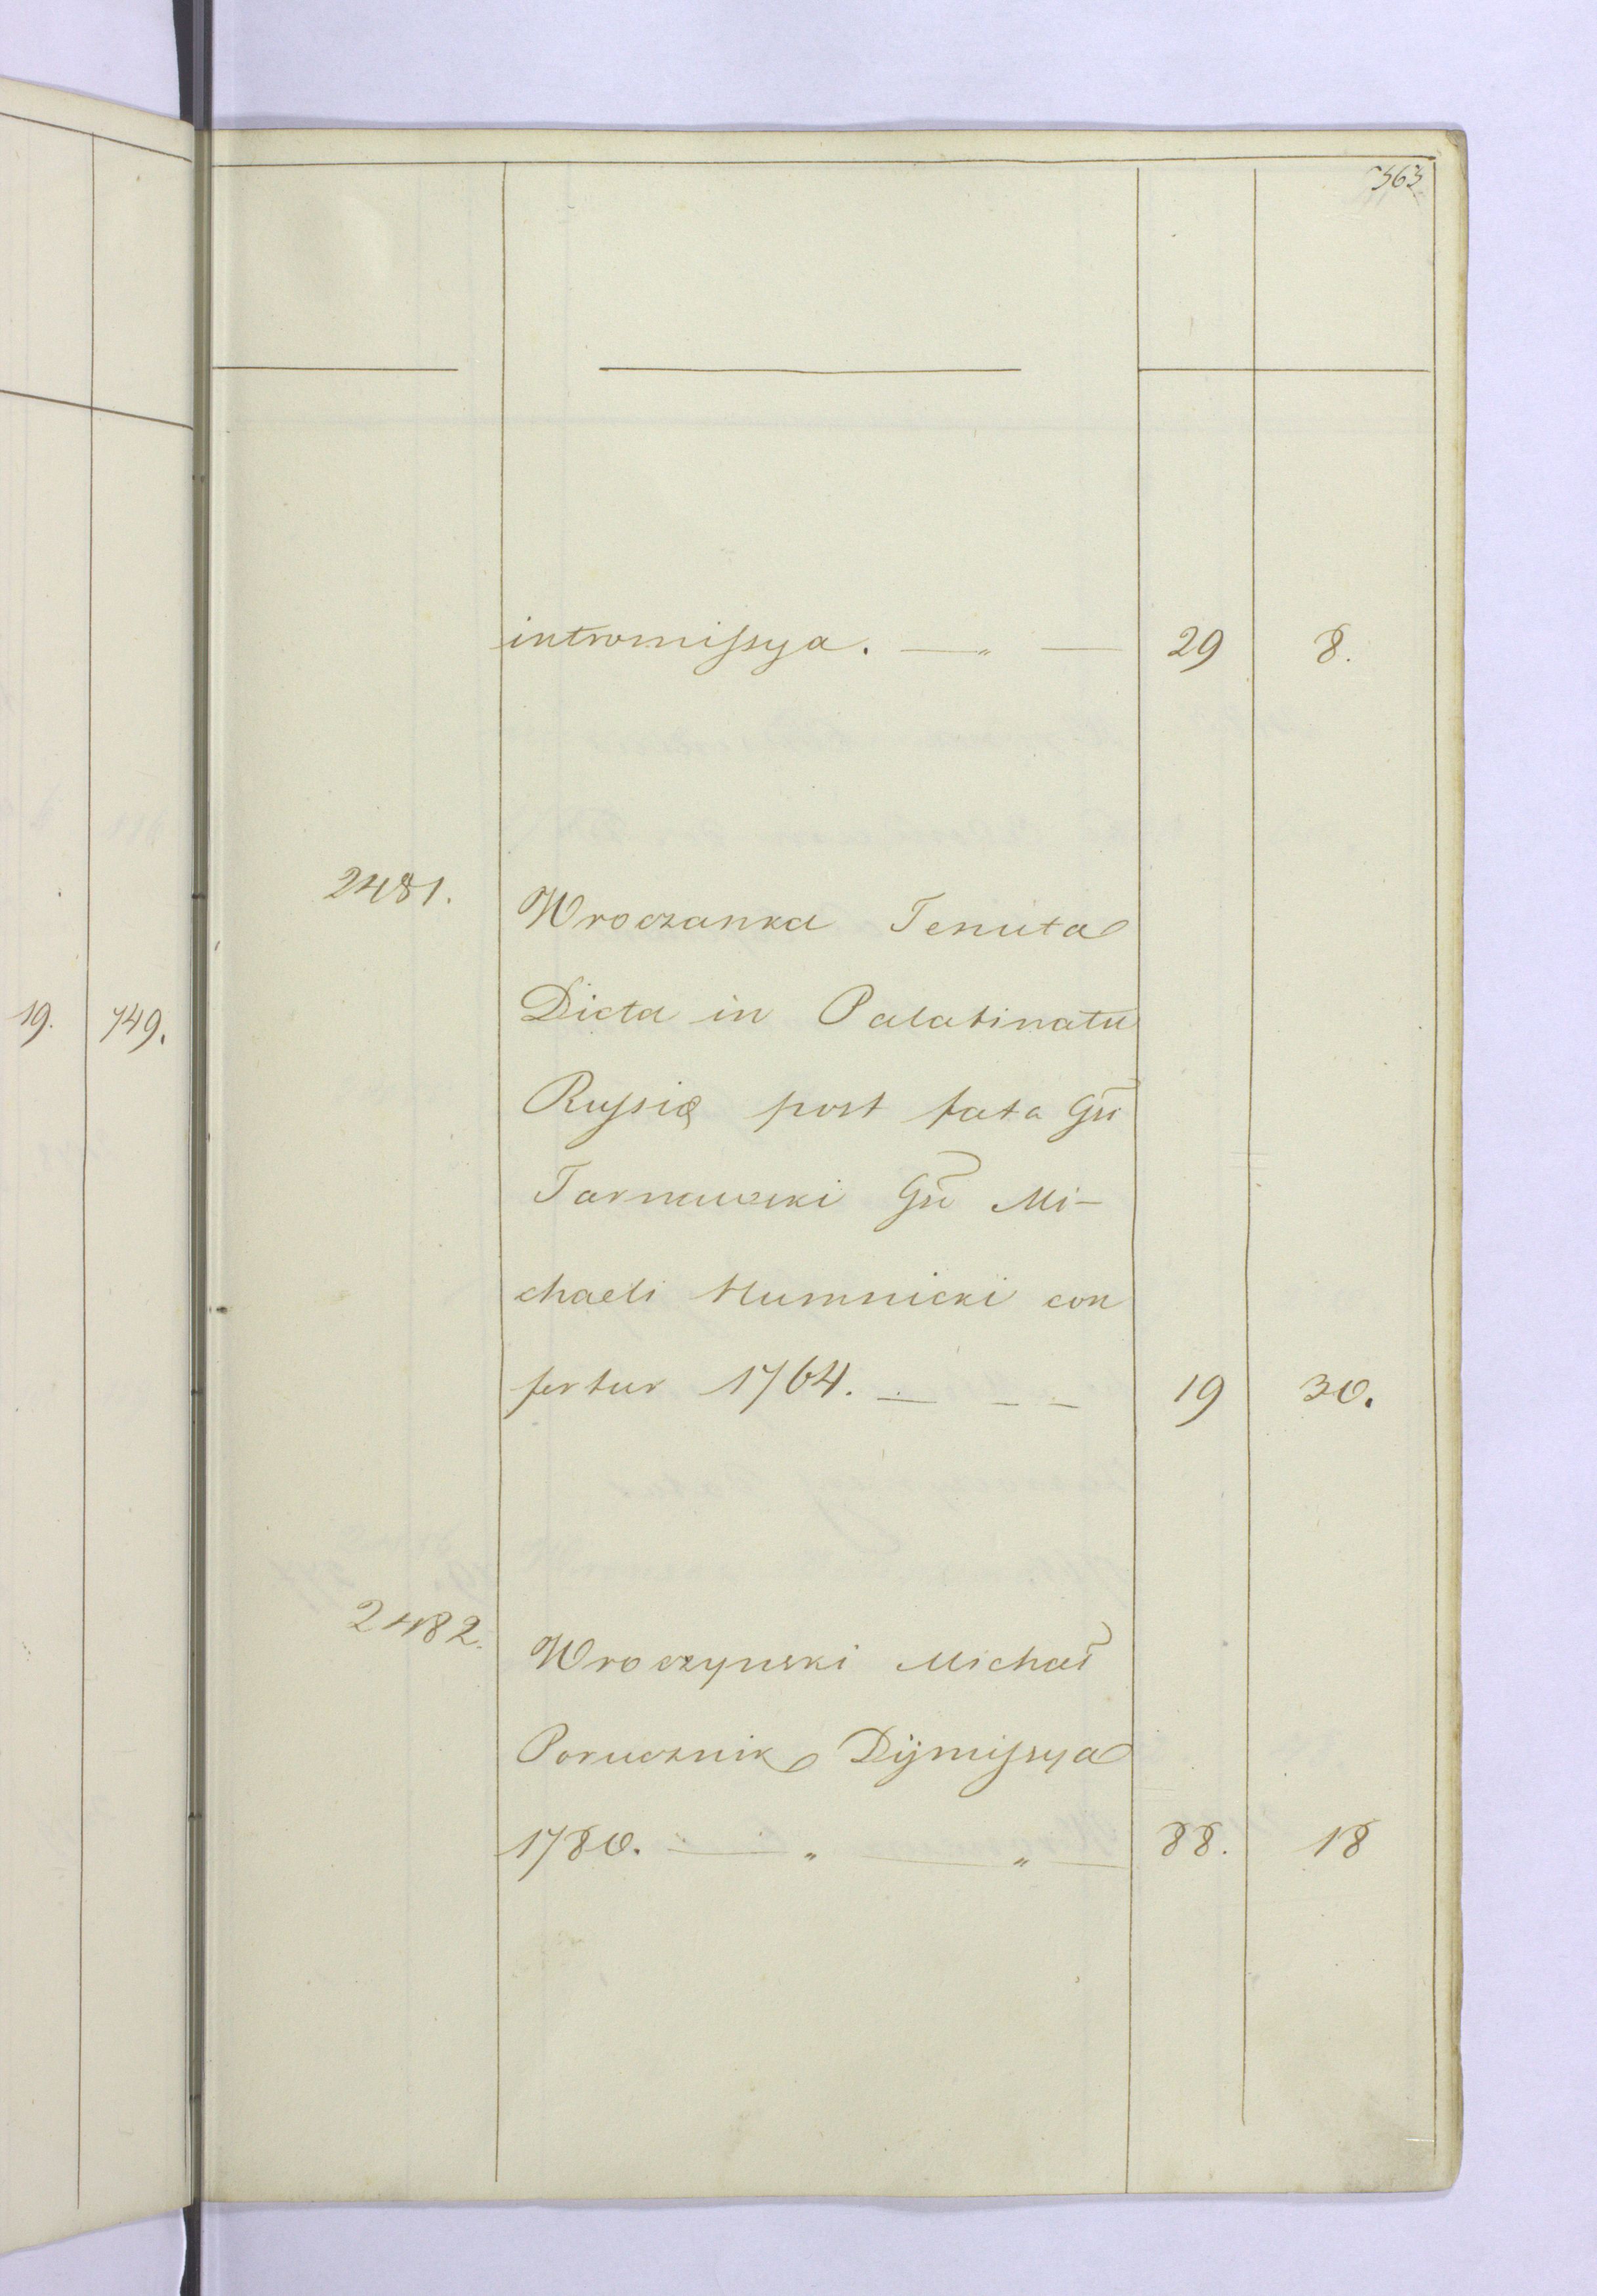 563
intromissya. — „ — 29 8.
2481. Wroczanka Tenuta
Dicta in Palatinatu
Russię post fata Gsi
Tarnawski Gso Mi-
chaeli Humnicki con
fertur 1764. — — — 19 30.
2482. Wroczynski Michał
Porucznik Dijmissya
1780. — „ — „ — 88. 18
19. 749.